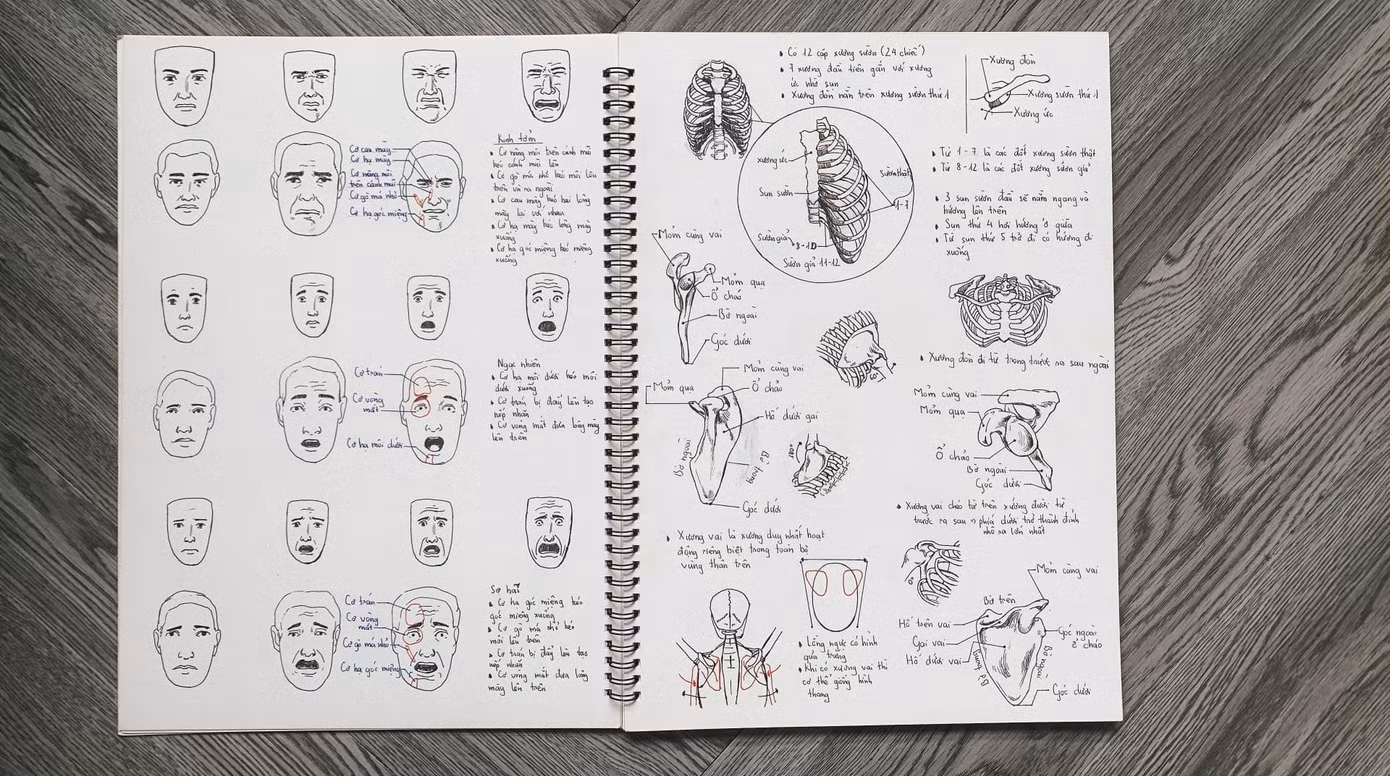 Cơ cau mày
Cơ hạ mày
Cơ nâng môi
trên cánh mũi
Cơ gò má nhỏ
Cơ hạ góc miệng
Kinh tởm
• Cơ nâng môi trên cánh mũi
kéo cánh mũi lên
• Cơ gò má nhỏ kéo môi lên
trên và ra ngoài
• Cơ cau mày kéo hai lông
mày lại với nhau
• Cơ hạ mày kéo lông mày
xuống
• Cơ hạ góc miệng kéo miệng
xuống
Cơ trán
Cơ vòng
mắt
Cơ hạ môi dưới
Ngạc nhiên
• Cơ hạ môi dưới kéo môi
dưới xuống
• Cơ trán bị đẩy lên tạo
nếp nhăn
• Cơ vòng mắt đưa lông mày
lên trên
Cơ trán
Cơ vòng
mắt
Cơ gò má nhỏ
Cơ hạ góc miệng
Sợ hãi
• Cơ hạ góc miệng kéo
góc miệng xuống
• Cơ gò má nhỏ kéo
môi lên trên
• Cơ trán bị đẩy lên tạo
nếp nhăn
• Cơ vòng mắt đưa lông
mày lên trên
• Có 12 cặp xương sườn (24 chiếc)
• 7 xương đầu tiên gắn với xương
ức nhờ sụn
• Xương đòn nằm trên xương sườn thứ 1
Xương đòn
Xương sườn thứ 1
Xương ức
xương ức
Sụn sườn
sườn thật
1-7
Sườn giả
8-10
Sườn giả 11-12
• Từ 1-7 là các đốt xương sườn thật
• Từ 8-12 là các đốt xương sườn giả
• 3 sụn sườn đầu sẽ nằm ngang và
hướng lên trên
• Sụn thứ 4 hơi hướng ở giữa
• Từ sụn thứ 5 trở đi có hướng đi
xuống
Mỏm cùng vai
Mỏm quạ
Ổ chảo
Bờ ngoài
Góc dưới
• Xương đòn đi từ trong trước ra sau ngoài
Mỏm cùng vai
Mỏm quạ
Ổ chảo
Hố dưới gai
Bờ ngoài
Bờ trong
Góc dưới
Mỏm cùng vai
Mỏm quạ
Ổ chảo
Bờ ngoài
Góc dưới
• Xương vai chéo từ trên xuống dưới từ
trước ra sau => phía dưới trở thành đỉnh
nhô ra lớn nhất
• Xương vai là xương duy nhất hoạt
động riêng biệt trong toàn bộ
vùng thân trên
• Lồng ngực có hình
quả trứng
• Khi có xương vai thì
cơ thể giống hình
thang
Mỏm cùng vai
Bờ trên
Hố trên vai
Gai vai
Hố dưới vai
Góc ngoài
ổ chảo
Bờ trong
Bờ ngoài
Góc dưới